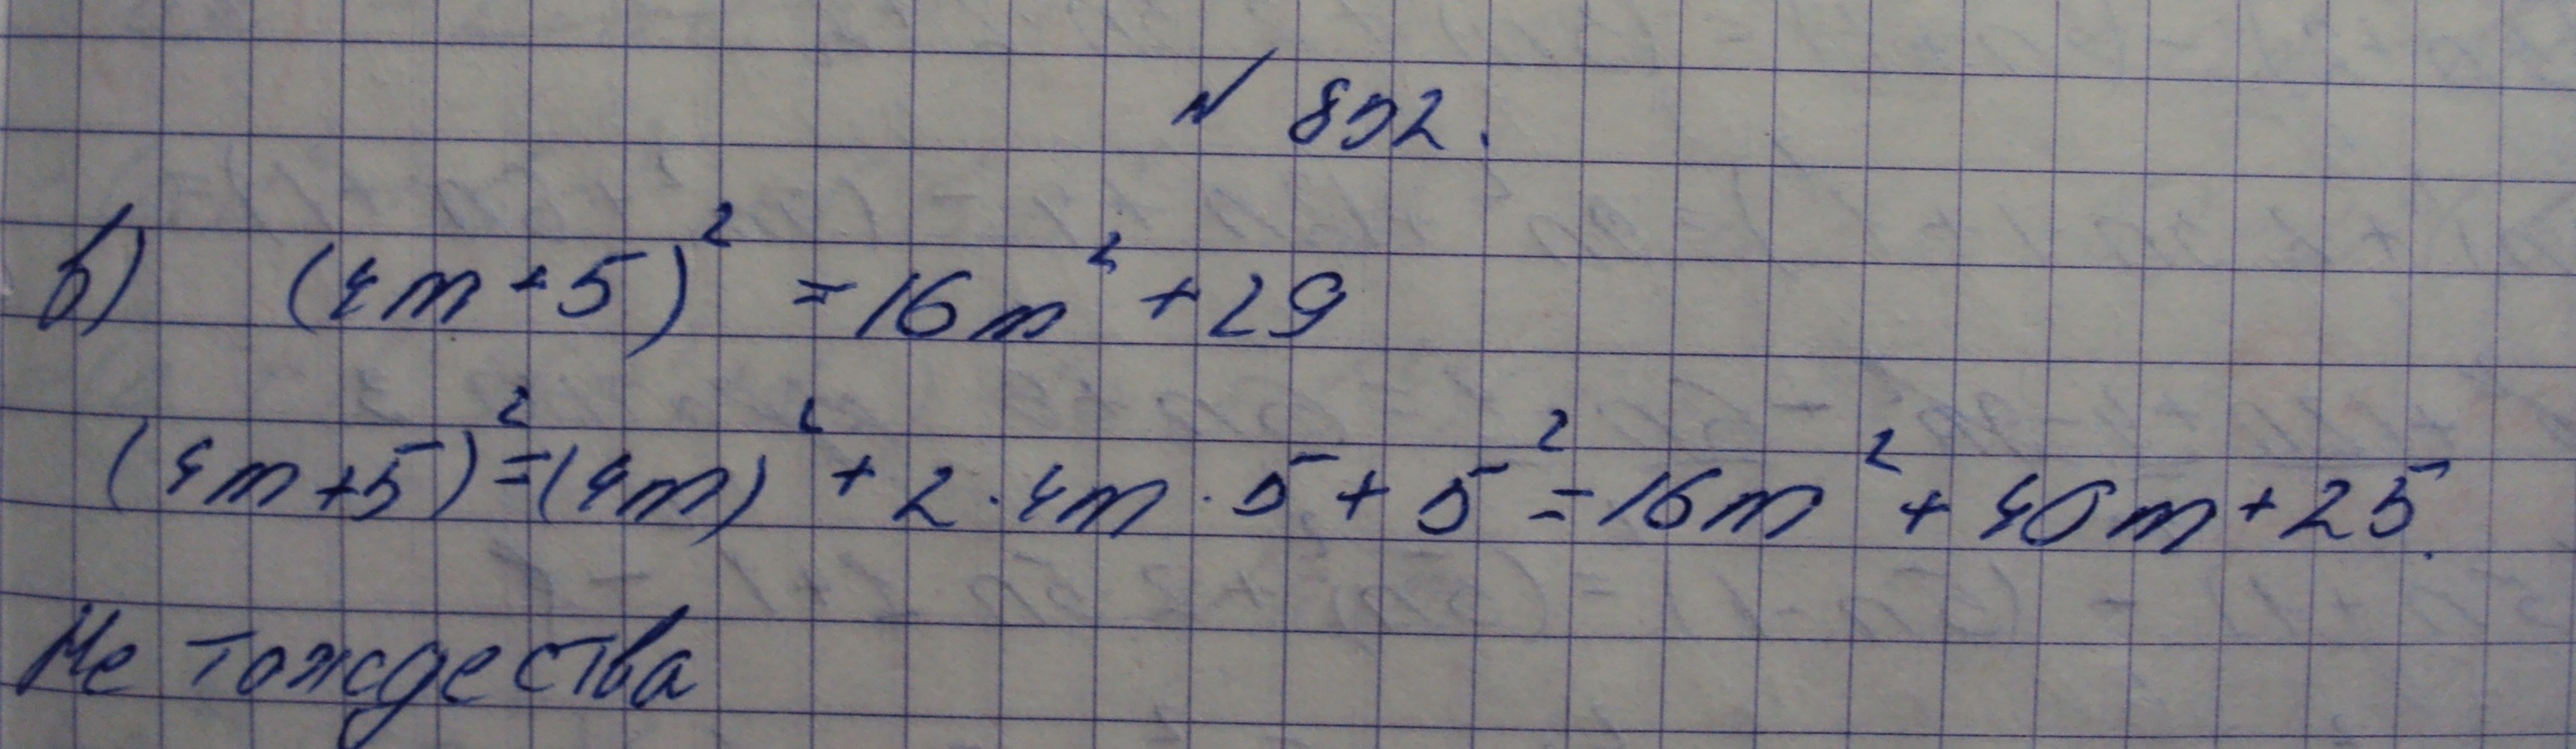 № 892.
в) (4m+5)² = 16m² + 29
(4m+5)² = (4m)² + 2·4m·5 + 5² = 16m² + 40m + 25.
Не тождества